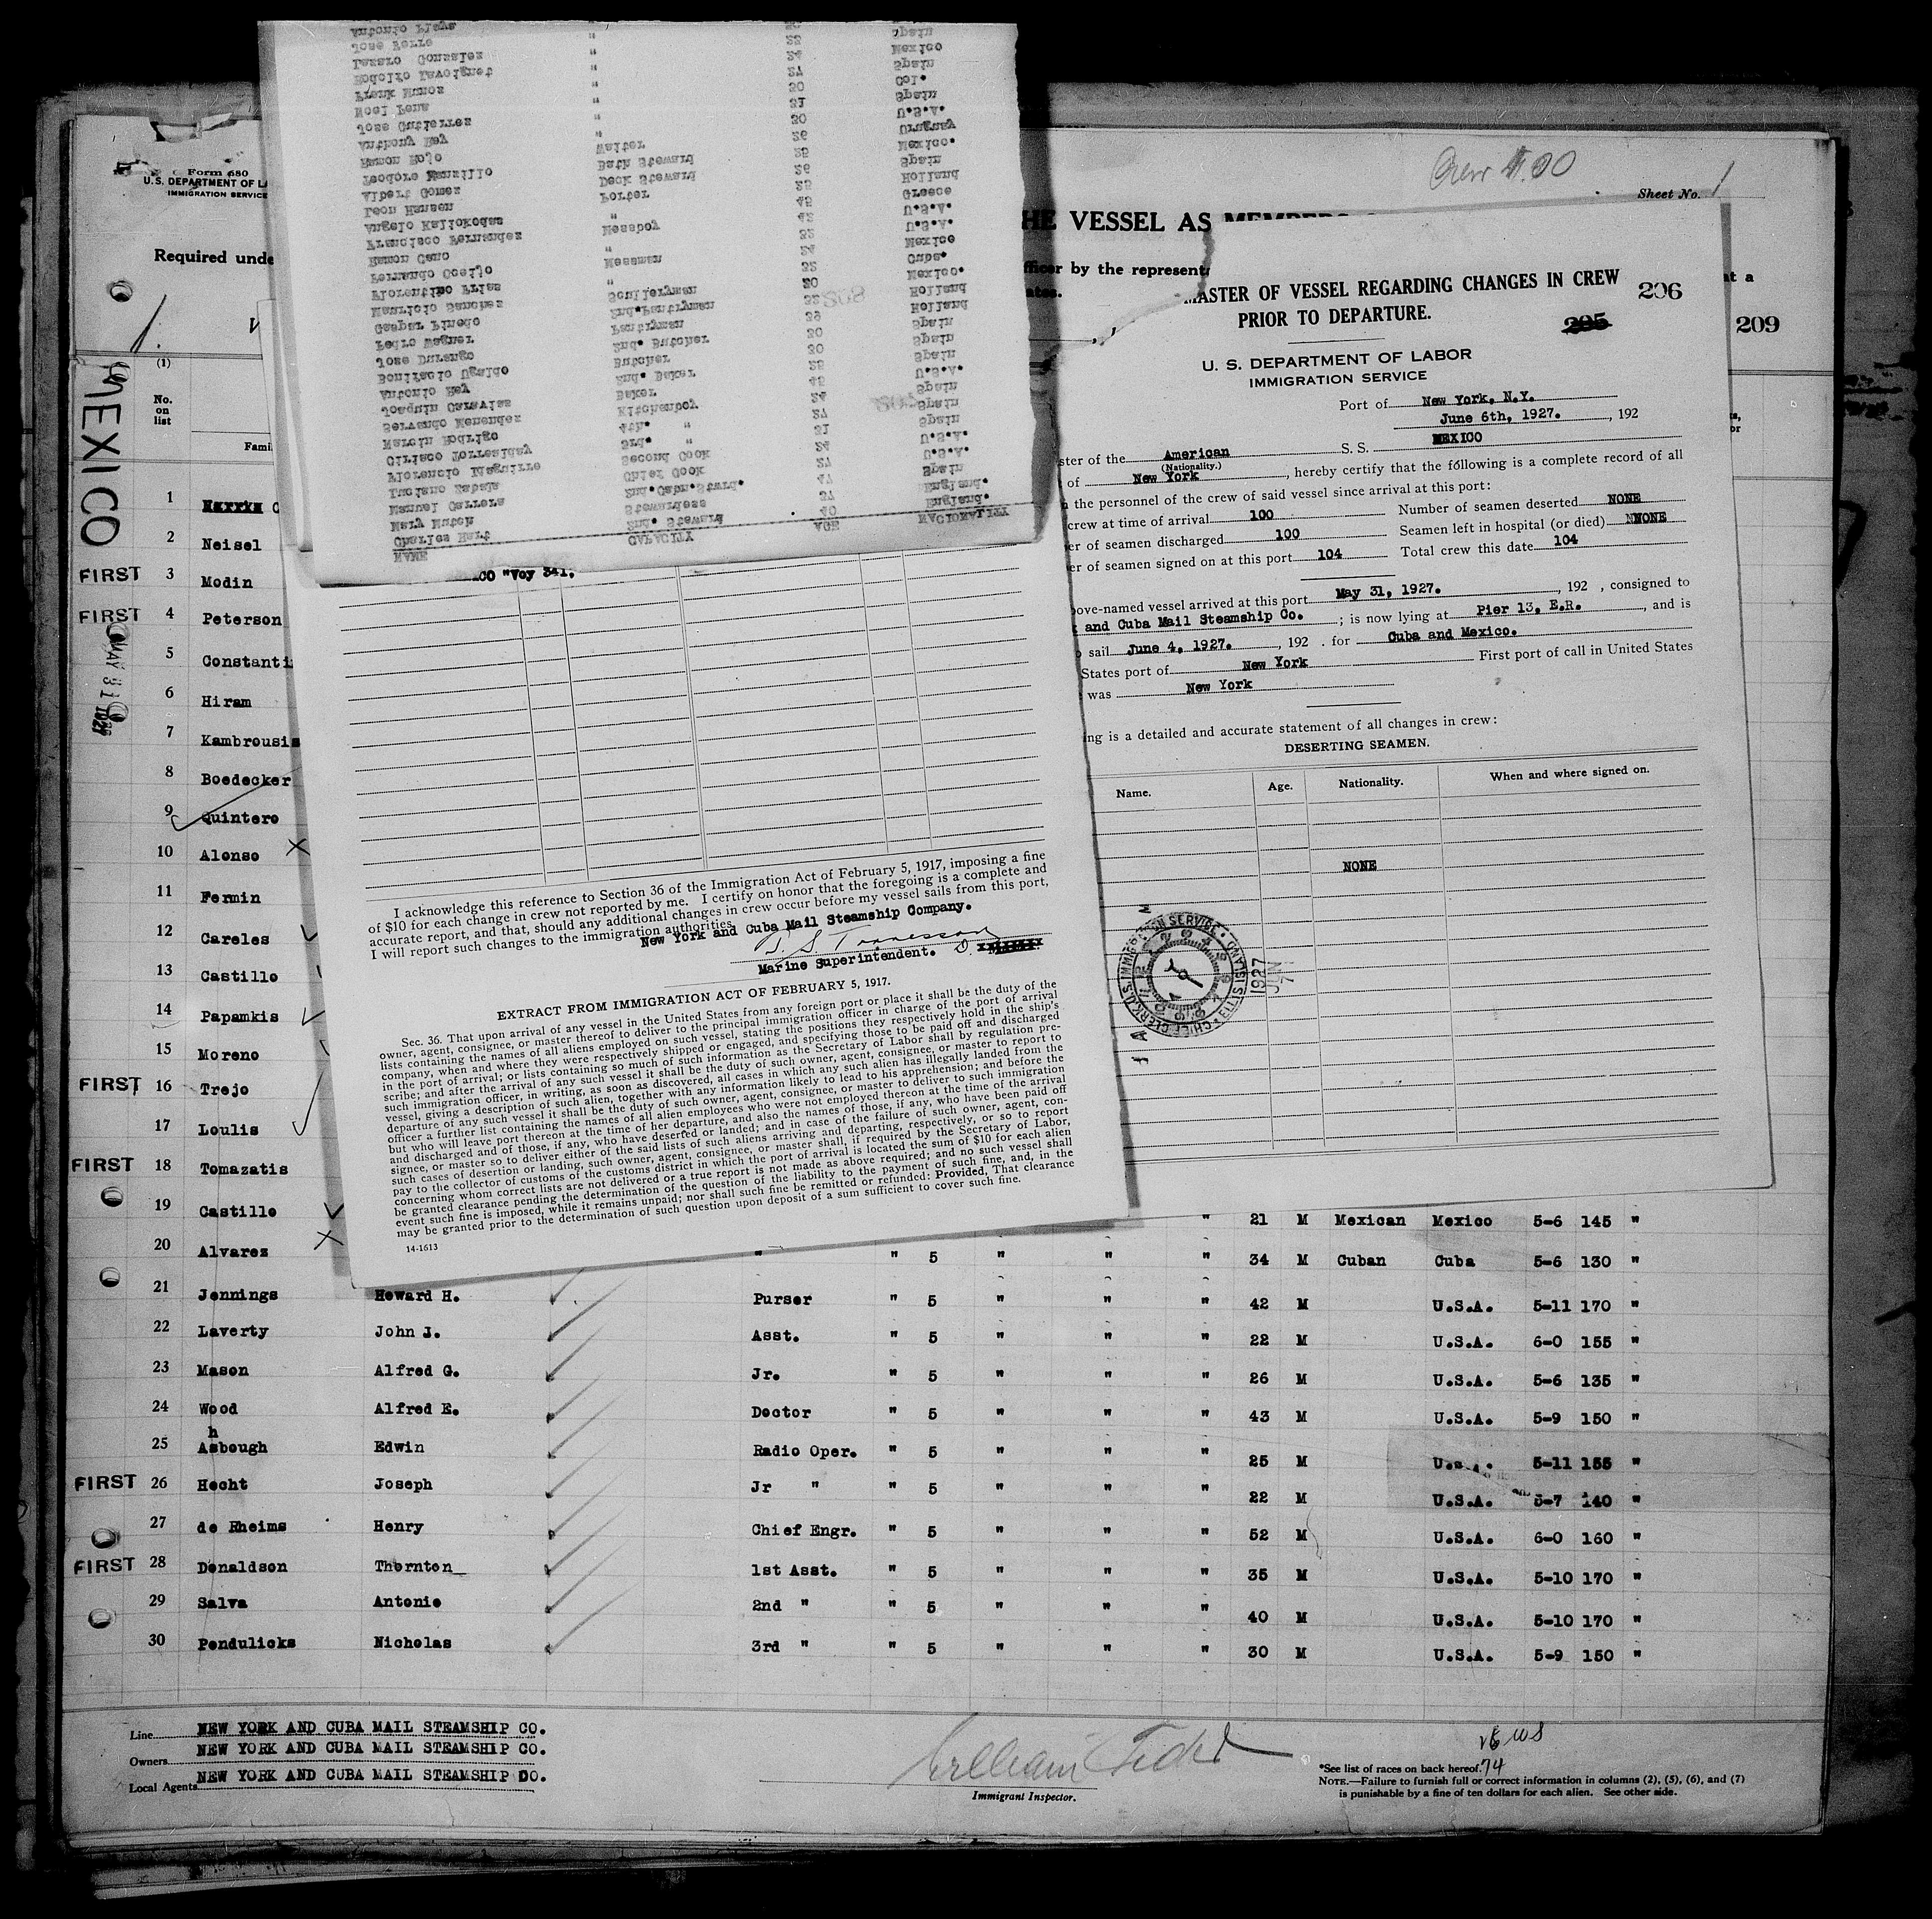 Form 680
U.S. DEPARTMENT OF LA
IMMIGRATION SERVICE
Required unde
Crew
Sheet No. 1
HE VESSEL AS MEMBERS
fficer by the represent
ates.
at a
209
NAME CAPACITY AGE NATIONALITY
Charles Hart 2nd. Steward 40 England.
Mary Mutch Stewardess 37 England.
Manuel Carrera 2nd.Cabn.Stwrd. 47 Spain
Luciano Zabala Chief Cook 27 U.S.A.
Florencio Idaguirre Second Cook 24 U.S.A.
Ciriaco Torresiday 3rd. " 31 Spain
Marcin Rodrigo 4th. " 27 Spain
Servando Menendez Kitchenboy 24 Spain
Joaquin Caravias Baker 45 U.S.A.
Antonio Rey 2nd. Baker 25 Spain
Bonifacio Ugalde Butcher 30 Spain
Jose Durango 2nd. Butcher 30 Spain
Pedro Wagner Pantryman 39 Holland
Gaspar Pinedo 2nd.Pantryman 32 Holland
Mauricio Sanchez Sculleryman 20 Mexico.
Florentino Frias " 32 Cuba.
Fernando Oceijo Messman 24 Mexico
Ramon Cano " 32 U.S.A.
Francisco Fernandez Messboy 42 U.S.A.
Angelo Kallokodas " 45 Greece
Leon Hansen Porter 25 Holland
Albert Gomez Deck Steward 26 Spain
Teodoro Mansillo Bath Steward 25 Mexico.
Ramon Rojo Waiter 26 Uruguay
Anthony Rey " 30 U.S.A.
Jose Gutierrez " 31 Spain
Noel Pena " 30 Col.
Frank Munoz " 27 Spain
Rodolfo Lavoignet " 24 Mexico
Lazaro Gonzalez " 25 Spain
Jose Ferro "
Antonio Playa
CO "Voy 341.
I acknowledge this reference to Section 36 of the Immigration Act of February 5, 1917, imposing a fine
of $10 for each change in crew not reported by me. I certify on honor that the foregoing is a complete and
accurate report, and that, should any additional changes in crew occur before my vessel sails from this port,
I will report such changes to the immigration authorities.
New York and Cuba Mail Steamship Company.
Marine Superintendent.
EXTRACT FROM IMMIGRATION ACT OF FEBRUARY 5, 1917.
Sec. 36. That upon arrival of any vessel in the United States from any foreign port or place it shall be the duty of the
owner, agent, consignee, or master thereof to deliver to the principal immigration officer in charge of the port of arrival
lists containing the names of all aliens employed on such vessel, stating the positions they respectively hold in the ship's
company, when and where they were respectively shipped or engaged, and specifying those to be paid off and discharged
in the port of arrival; or lists containing so much of such information as the Secretary of Labor shall by regulation pre-
scribe; and after the arrival of any such vessel it shall be the duty of such owner, agent, consignee, or master to report to
such immigration officer, in writing, as soon as discovered, all cases in which any such alien has illegally landed from the
vessel, giving a description of such alien, together with any information likely to lead to his apprehension; and before the
departure of any such vessel it shall be the duty of such owner, agent, consignee, or master to deliver to such immigration
officer a further list containing the names of all alien employees who were not employed thereon at the time of the arrival
but who will leave port thereon at the time of her departure, and also the names of those, if any, who have been paid off
and discharged and of those, if any, who have deserted or landed; and in case of the failure of such owner, agent, con-
signee, or master so to deliver either of the said lists of such aliens arriving and departing, respectively, or so to report
such cases of desertion or landing, such owner, agent, consignee, or master shall, if required by the Secretary of Labor,
pay to the collector of customs of the customs district in which the port of arrival is located the sum of $10 for each alien
concerning whom correct lists are not delivered or a true report is not made as above required; and no such vessel shall
be granted clearance pending the determination of the question of the liability to the payment of such fine, and, in the
event such fine is imposed, while it remains unpaid; nor shall such fine be remitted or refunded: Provided, That clearance
may be granted prior to the determination of such question upon deposit of a sum sufficient to cover such fine.
14-1613
MASTER OF VESSEL REGARDING CHANGES IN CREW
PRIOR TO DEPARTURE.
206
205
U. S. DEPARTMENT OF LABOR
IMMIGRATION SERVICE
Port of New York, N.Y.
June 6th, 1927. , 192
ster of the American S. S. MEXICO
(Nationality.)
of New York , hereby certify that the following is a complete record of all
the personnel of the crew of said vessel since arrival at this port:
crew at time of arrival 100 Number of seamen deserted NONE
er of seamen discharged 100 Seamen left in hospital (or died) NNONE
er of seamen signed on at this port 104 Total crew this date 104
ove-named vessel arrived at this port May 31, 1927. , 192 , consigned to
and Cuba Mail Steamship Co. ; is now lying at Pier 13, E.R. , and is
sail June 4, 1927. , 192 . for Cuba and Mexico.
States port of New York First port of call in United States
was New York
ng is a detailed and accurate statement of all changes in crew:
DESERTING SEAMEN.
Name. Age. Nationality. When and where signed on.
NONE
CHIEF CLERK, U.S. IMMIGRATION SERVICE ELLIS ISLAND
1927 JUN 7
MEXICO
MAY 31 1927
(1)
No. on list
Fami
1
2 Neisel
FIRST 3 Modin
FIRST 4 Peterson
5 Constanti
6 Hiram
7 Kambrousis
8 Boedecker
9 Quintero
10 Alonso
11 Fermin
12 Careles
13 Castillo
14 Papamkis
15 Moreno
FIRST 16 Trejo
17 Loulis
FIRST 18 Tomazatis
19 Castillo " 21 M Mexican Mexico 5-6 145 "
20 Alvarez " " 5 " " " 34 M Cuban Cuba 5-6 130 "
21 Jennings Howard H. Purser " 5 " " " 42 M U.S.A. 5-11 170 "
22 Laverty John J. Asst. " 5 " " " 22 M U.S.A. 6-0 155 "
23 Mason Alfred G. Jr. " 5 " " " 26 M U.S.A. 5-6 135 "
24 Wood Alfred E. Doctor " 5 " " " 43 M U.S.A. 5-9 150 "
h
25 Asbough Edwin Radio Oper. " 5 " " " 25 M U.S.A. 5-11 155 "
FIRST 26 Hecht Joseph Jr " " 5 " " " 22 M U.S.A. 5-7 140 "
27 de Rheims Henry Chief Engr. " 5 " " " 52 M U.S.A. 6-0 160 "
FIRST 28 Donaldson Thornton 1st Asst. " 5 " " " 35 M U.S.A. 5-10 170 "
29 Salva Antonio 2nd " " 5 " " " 40 M U.S.A. 5-10 170 "
30 Pendulicks Nicholas 3rd " " 5 " " " 30 M U.S.A. 5-9 150 "
Line NEW YORK AND CUBA MAIL STEAMSHIP CO.
Owners NEW YORK AND CUBA MAIL STEAMSHIP CO.
Local Agents NEW YORK AND CUBA MAIL STEAMSHIP CO.
Immigrant Inspector.
*See list of races on back hereof. 74
NOTE.—Failure to furnish full or correct information in columns (2), (5), (6), and (7)
is punishable by a fine of ten dollars for each alien. See other side.